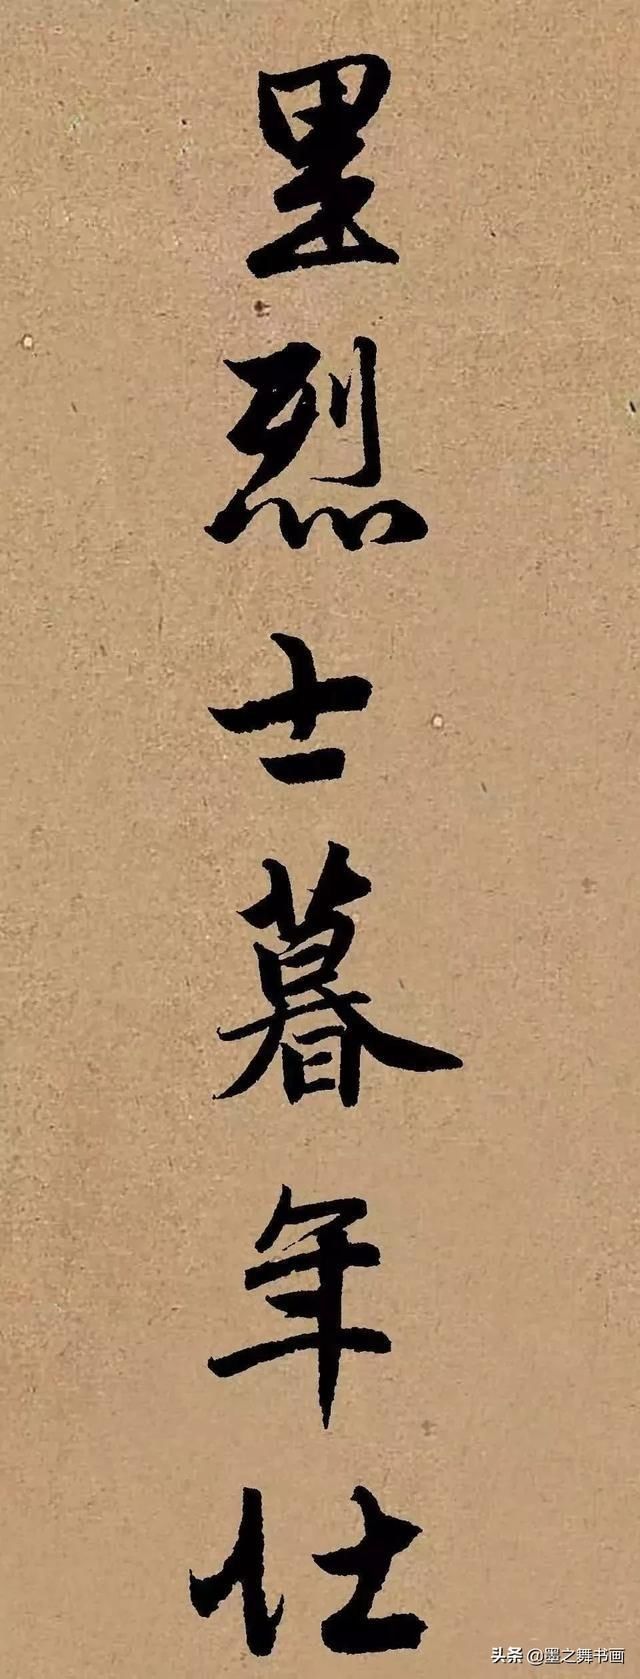 里烈士暮年壮
头条@墨之舞书画